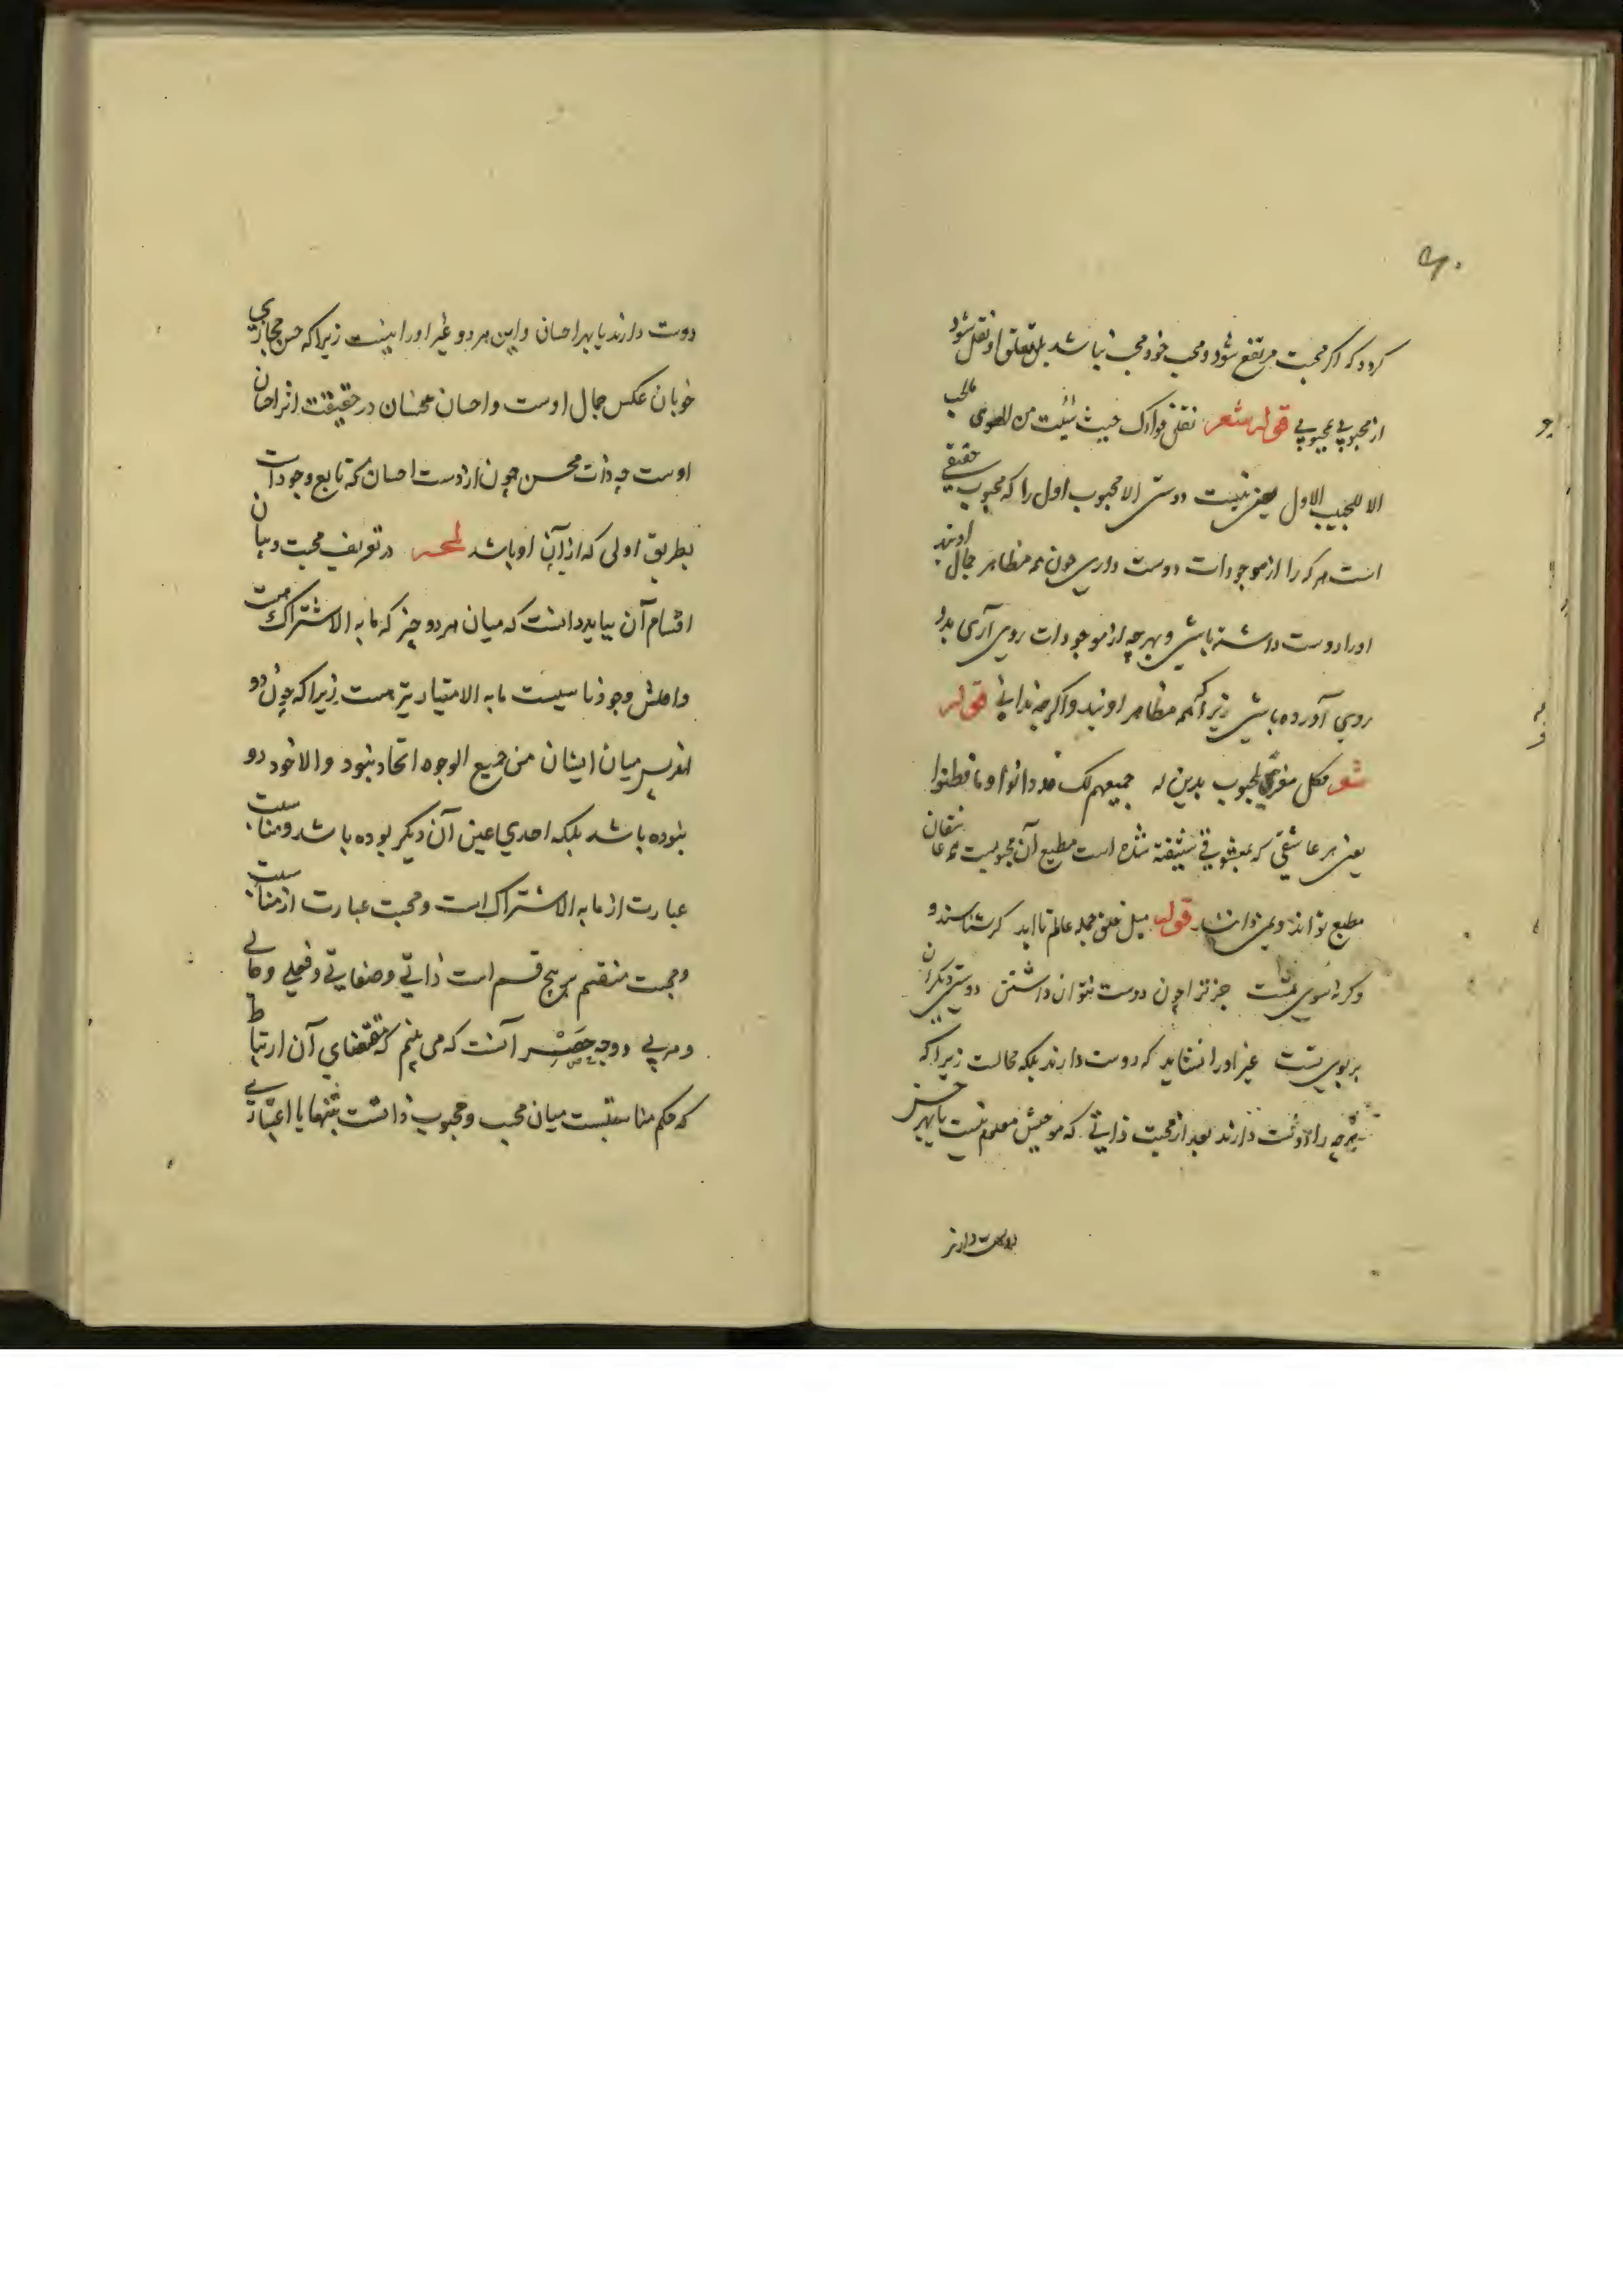 ۶۰
کردد که اکر محبت مرتفع شود و محب خود محب نباشد بل تعلق او نقل شود
از محبوبی بمحبوبی قوله شعر نقل فوادک حیث شئت من الهوی ما الحب
الا للحبیب الاول یعنی نیست دوستی الا محبوب اول را که محبوب حقیقی
است هر که را از موجودات دوست داری چون همه مظاهر جمال اوند
اورا دوست داشته باشی و بهرچه از موجودات روی آری بدو
روی آورده باشی زیرا که همه مظاهر اویند و اکرچه ندانی قوله
شعر فکل مغری بمحبوب یدین له جمیعهم لک قد دانوا و ما فطنوا
یعنی هر عاشقی که بمعشوقی شیفته شده است مطیع آن محبوبیست همه عاشقان
مطیع تو اند و نمی دانند قوله میل خلق جمله عالم تا ابد کر شناسند و
وکرنه سوی تست جز ترا چون دوست نتوان داشتن دوستی دیکران
بر بوی تست غیر اورا نشاید که دوست دارند بلکه محالست زیرا که
هرچه را دوست دارند بعد از محبت ذاتی که موجبش معلوم نیست یا بهر حسن
دوست دارند
دوست دارند یا بهر احسان و این هر دو غیر اورا نیست زیرا که حسن مجازی
خوبان عکس جمال اوست و احسان محسنان در حقیقت اثر احسان
اوست چه ذات محسن چون ازوست احسان که تابع وجود است
بطریق اولی که از آن او باشد لمحه در تعریف محبت و بیان
اقسام آن بباید دانست که میان هر دو چیز که مابه الاشتراک هست
و وجودنا مابه الامتیاز نیز هست زیرا که چون دو
میان ایشان من جمیع الوجوه اتحاد نبود والا خود دو
نبوده باشد بلکه احدی عین آن دیکر بوده باشد و مناسبت
عبارت از مابه الاشتراک است و محبت عبارت از مناسبت
و محبت منقسم بر پنج قسم است ذاتی و صفاتی و فعلی و حالی
و مرتبی و وجه حصر آنست که می بینم که مقتضای آن ارتباط
که حکم مناسبتست میان محب و محبوب ذاتست بتنها یا اعتباری